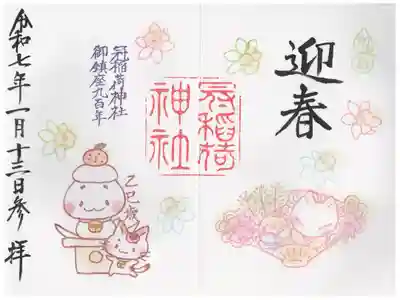 迎春
冠稲荷
神社
冠稲荷神社
御鎮座九百年
乙巳歳
令和七年一月十三日参拝